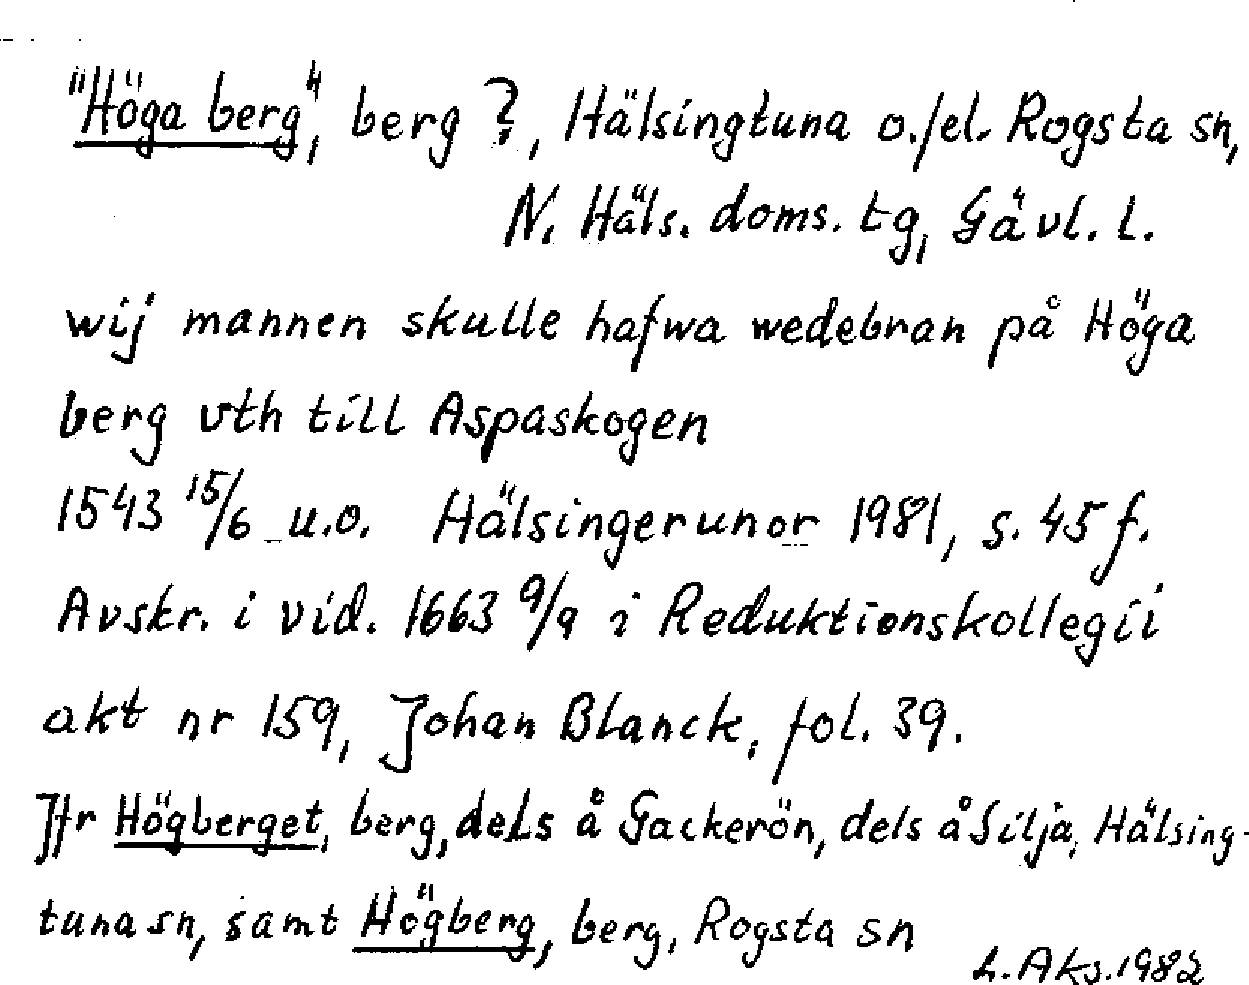 "Höga berg", berg ?, Hälsingtuna o./el. Rogsta sn,
N. Häls. doms. tg, Gävl. l.
wij mannen skulle hafwa wedebran på Höga
berg vth till Aspaskogen
1543 15/6 u.o. Hälsingerunor 1981, s. 45 f.
Avskr. i vid. 1663 9/9 i Reduktionskollegii
akt nr 159, Johan Blanck, fol. 39.
Jfr Högberget, berg, dels å Gackerön, dels å Silja, Hälsing-
tuna sn, samt Högberg, berg, Rogsta sn
L. Aks. 1982